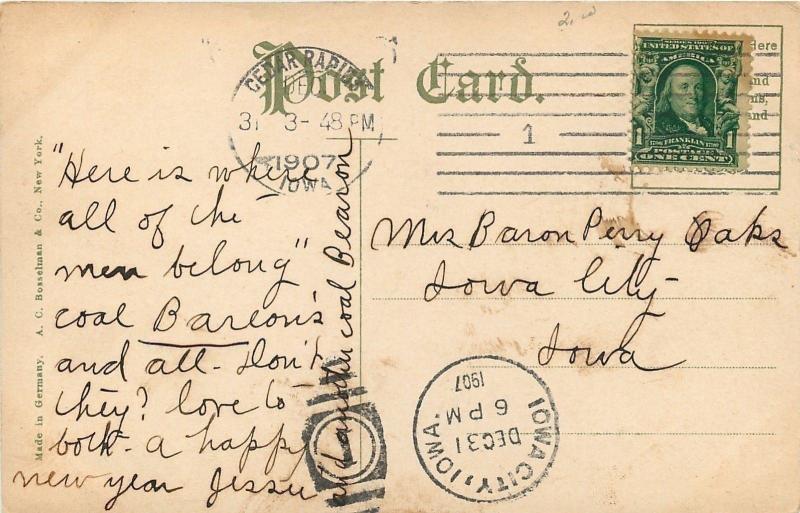 2.
Post Card.
CEDAR RAPIDS
DEC
31 3-48 PM
1907
IOWA
1
Here
and
and
SERIES 1902
UNITED STATES OF
AMERICA
1 FRANKLIN 1
POSTAGE
ONE CENT
Made in Germany. A. C. Bosselman & Co., New York.
"Here is where
all of the
men belong"
coal Bareon's
and all. Don't
they? love to
both. a happy
new year Jessie
and another coal Bearon
Mrs Baron Perry Oaks
Iowa City
Iowa
IOWA CITY, IOWA.
DEC 31
6 PM
1907